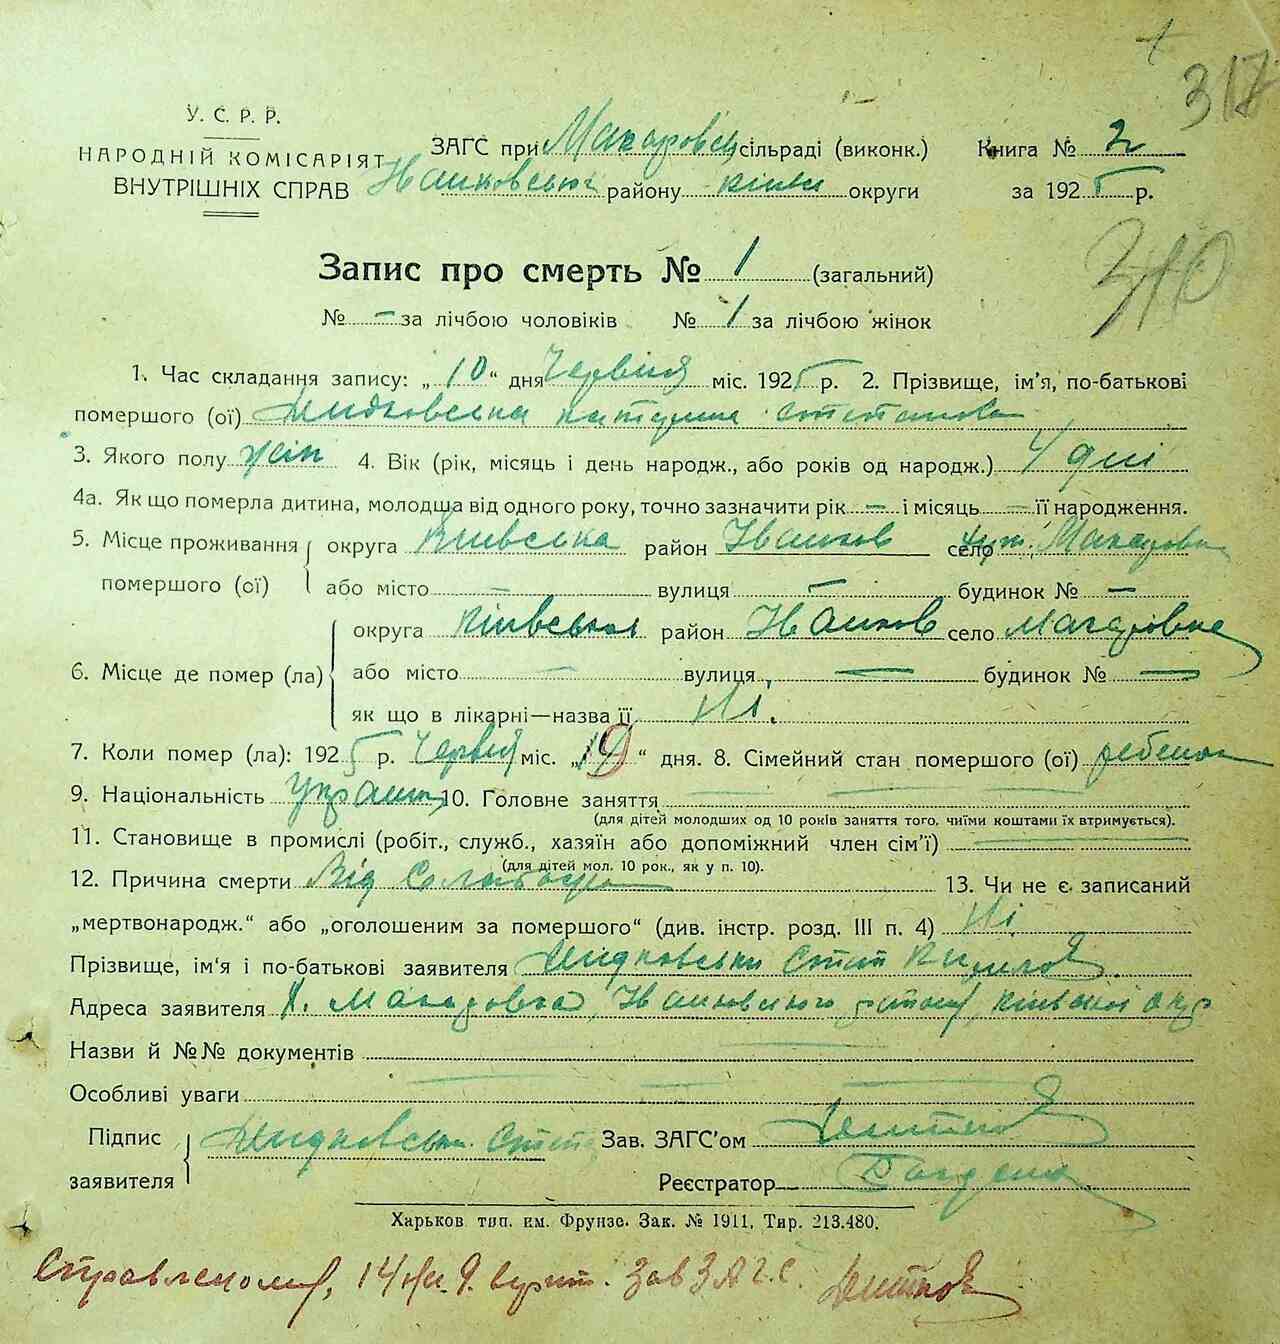 317
У. С. Р. Р.
НАРОДНІЙ КОМІСАРІЯТ
ВНУТРІШНІХ СПРАВ
ЗАГС при Макаровск сільраді (виконк.) Книга № 2
району округи за 1925 р.
310
Запис про смерть № 1 (загальний)
№ – за лічбою чоловіків № 1 за лічбою жінок
1. Час складання запису: „ 10 “ дня Червня міс. 1925 р. 2. Прізвище, ім’я, по-батькові
помершого (ої)
3. Якого полу жін 4. Вік (рік, місяць і день народж., або років од народж.) 4 дні
4а. Як що померла дитина, молодша від одного року, точно зазначити рік – і місяць – її народження.
5. Місце проживання помершого (ої) округа Київська район Іванков село хут. Макаровка
або місто – вулиця – будинок № –
6. Місце де помер (ла) округа Київська район Іванков село Макаровка
або місто – вулиця – будинок № –
як що в лікарні—назва її Ні.
7. Коли помер (ла): 1925 р. Червня міс. „ “ дня. 8. Сімейний стан помершого (ої) ребенок
9. Національність Украин 10. Головне заняття
(для дітей молодших од 10 років заняття того, чиїми коштами їх втримується).
11. Становище в промислі (робіт., служб., хазяїн або допоміжний член сім’ї)
(для дітей мол. 10 рок., як у п. 10).
12. Причина смерти Від 13. Чи не є записаний
„мертвонародж.“ або „оголошеним за помершого“ (див. інстр. розд. III п. 4) Ні
Прізвище, ім’я і по-батькові заявителя
Адреса заявителя Х. Макаровка, Іванковского Київської окр
Назви й №№ документів
Особливі уваги
Підпис заявителя
Зав. ЗАГС’ом
Реєстратор
Харьков тип. им. Фрунзе. Зак. № 1911, Тир. 213.480.
14 Зав ЗАГС.